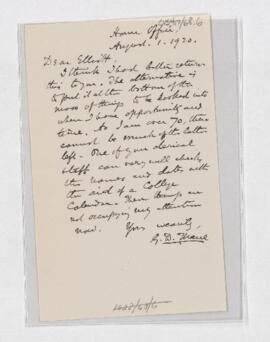 Home Office,
August. 1. 1920.
Dear Elliott,
I think I had better return
this to you. The alternative is
to put it at the bottom of the
mass of things to be looked into
when I have opportunity and
time. As I am over 70, there
cannot be much of the latter
left. One of your clerical
staff can very well check
the names and dates with
the aid of a College
Calendar. These things are
not occupying my attention
now. Yrs